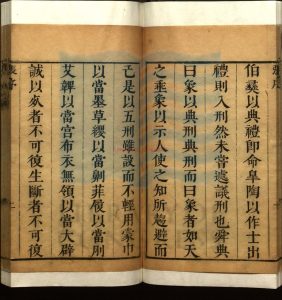 伯彝以典禮即命臯陶以作士出
禮則入刑然未嘗遽議刑也舜典
曰象以典刑典刑而曰象者如天
之垂象以示人使之知所趨避而
已是以五刑雖設而不輕用蒙巾
以當墨草纓以當劓菲履以當刖
艾韠以當宫布衣無領以當大辟
誠以死者不可復生斷者不可復